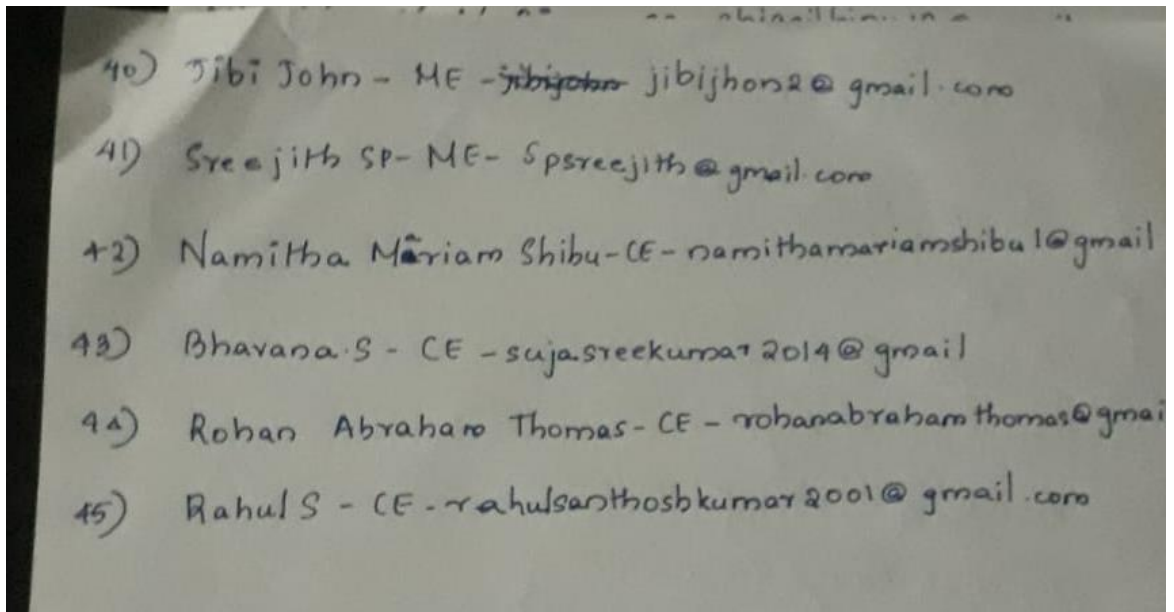 40) Jibi John - ME - jibijohn jibijhon2@gmail.com
41) Sreejith SP - ME - Spsreejith@gmail.com
42) Namitha Mariam Shibu - CE - namithamariamshibu1@gmail
43) Bhavana.S - CE - sujasreekumar2014@gmail
44) Rohan Abraham Thomas - CE - rohanabrahamthomas@gmai
45) Rahul S - CE - rahulsanthoshkumar2001@gmail.com